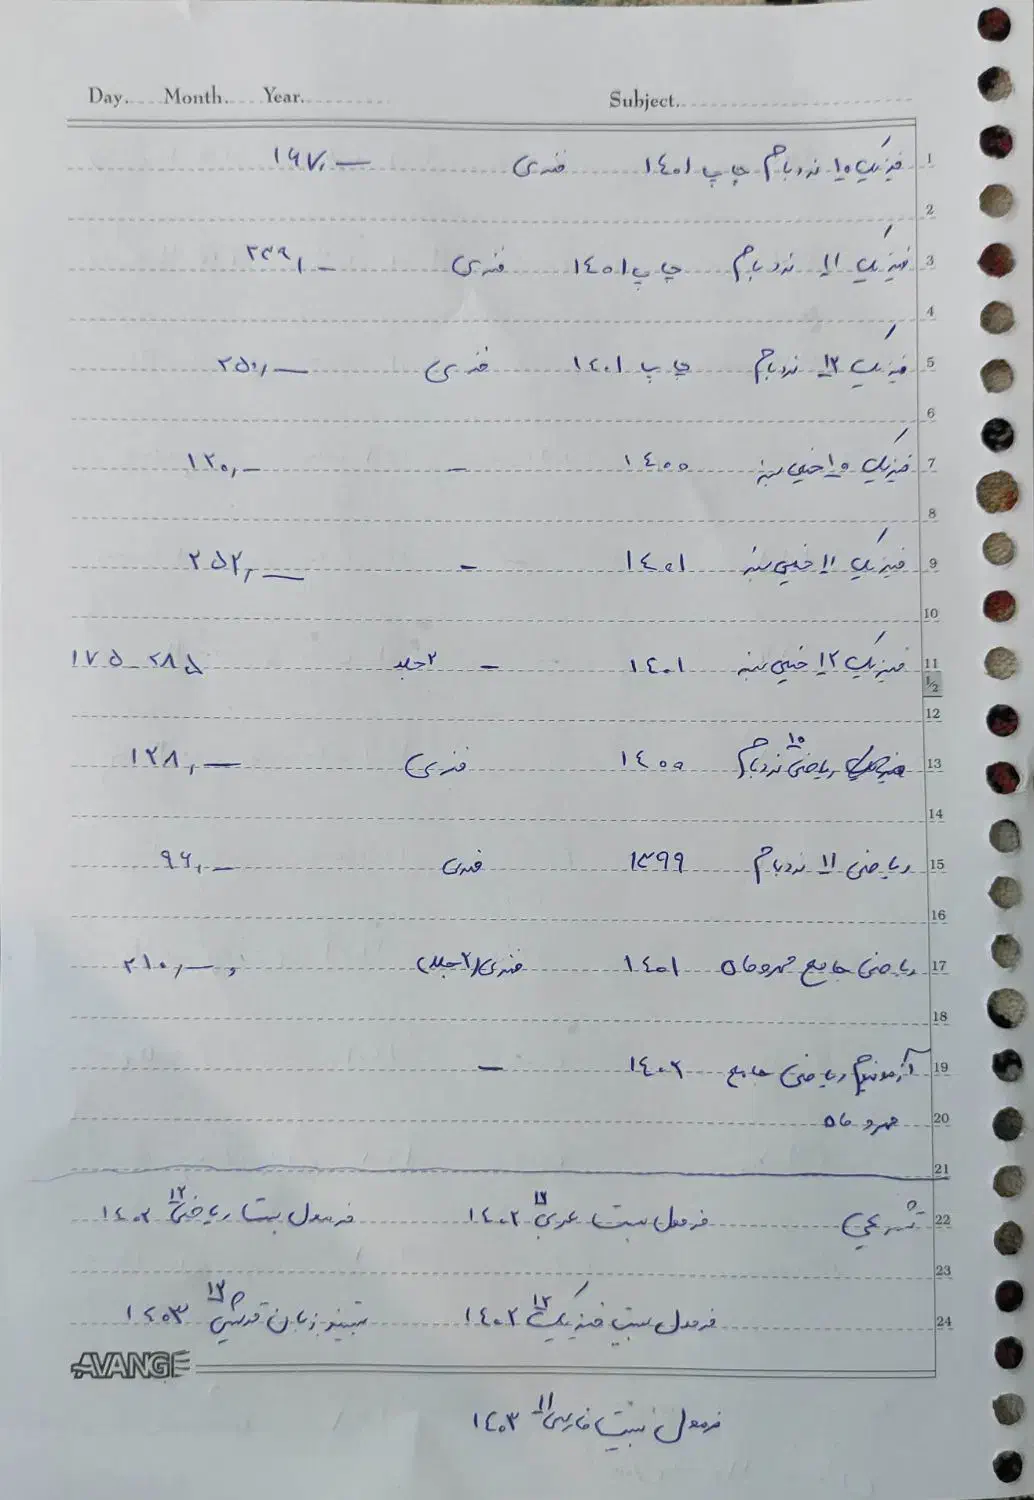 Day..... Month..... Year............... Subject...............
1 فیزیک ۱۰ نردبام چاپ ۱۴۰۱ فنری ۱۶۷,—
2
3 فیزیک ۱۱ نردبام چاپ ۱۴۰۱ فنری ۲۳۹,—
4
5 فیزیک ۱۲ نردبام چاپ ۱۴۰۱ فنری ۲۵۰,—
6
7 فیزیک ۱۰ خیلی سبز ۱۴۰۰ — ۱۲۰,—
8
9 فیزیک ۱۱ خیلی سبز ۱۴۰۱ — ۲۵۲,—
10
11 فیزیک ۱۲ خیلی سبز ۱۴۰۱ — ۲ جلد ۲۸۵ - ۱۷۵
1/2
12
13 ریاضی ۱۰ نردبام ۱۴۰۰ فنری ۱۲۸,—
14
15 ریاضی ۱۱ نردبام ۱۳۹۹ فنری ۹۶,—
16
17 ریاضی جامع مهروماه ۱۴۰۱ فنری (۲ جلد) ۲۱۰,—
18
19 آزمونیوم ریاضی جامع ۱۴۰۲ —
20 مهروماه
21
22 شرعی فرمول بیست عربی ۱۲ ۱۴۰۲ فرمول بیست ریاضی ۱۲ ۱۴۰۲
23
24 فرمول بیست فیزیک ۱۲ ۱۴۰۲ زبان ۱۲ ۱۴۰۳
AVANGE
فرمول بیست فارسی ۱۱ ۱۴۰۳